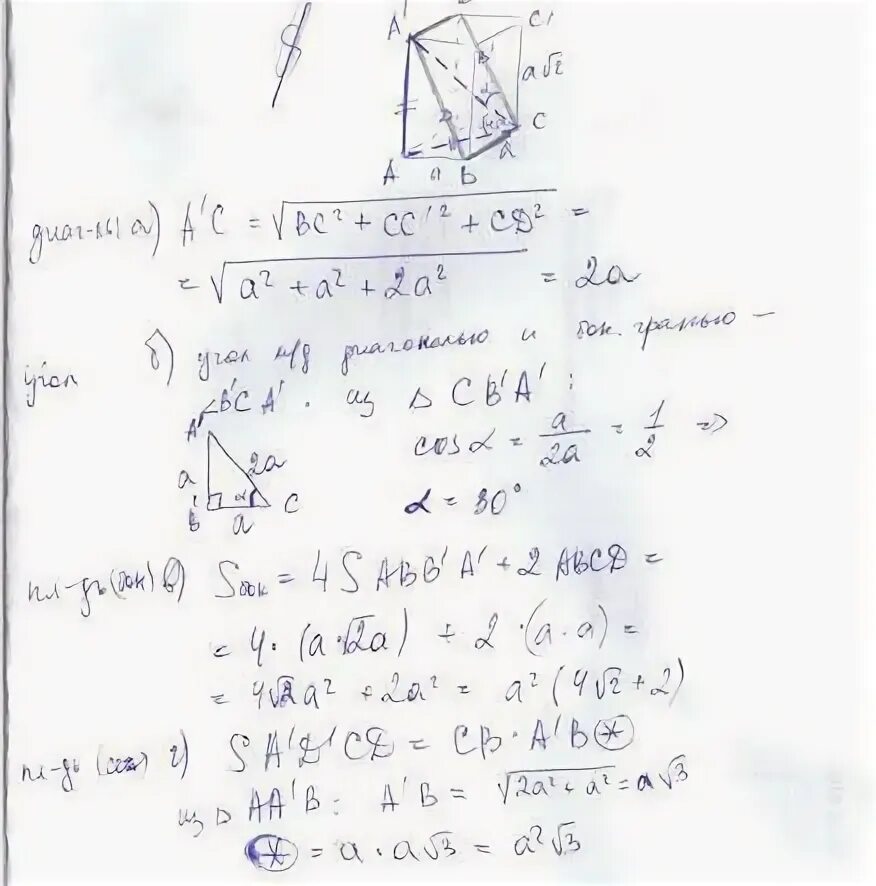 A' C'
B'
a√2
α
C
a
A a B
диаг-лы а) A'C = √(BC² + CC'² + CD²) =
= √(a² + a² + 2a²) = 2a
угол б) угол м/д диагональю и бок. гранью –
∠B'CA'. из △ CB'A' :
A'
a 2a cosα = a/2a = 1/2 =>
B α C α = 30°
a
пл-дь (бок) в) Sбок = 4 S ABB'A' + 2 ABCD =
= 4 · (a · √2a) + 2 · (a · a) =
= 4√2a² + 2a² = a² (4√2 + 2)
пл-дь (сеч) г) S A'D'CD = CB · A'B (*)
из △ AA'B : A'B = √(2a² + a²) = a√3
(*) = a · a√3 = a²√3